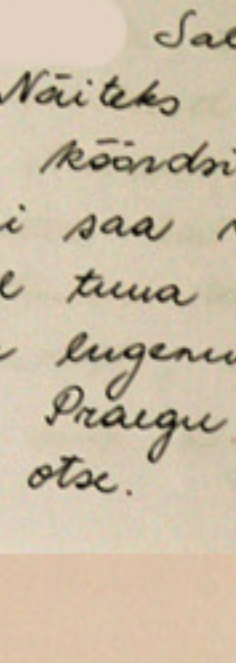 Sal
Näiteks
köördsi
i saa
l tuua
lugenu
Praegu
otse.